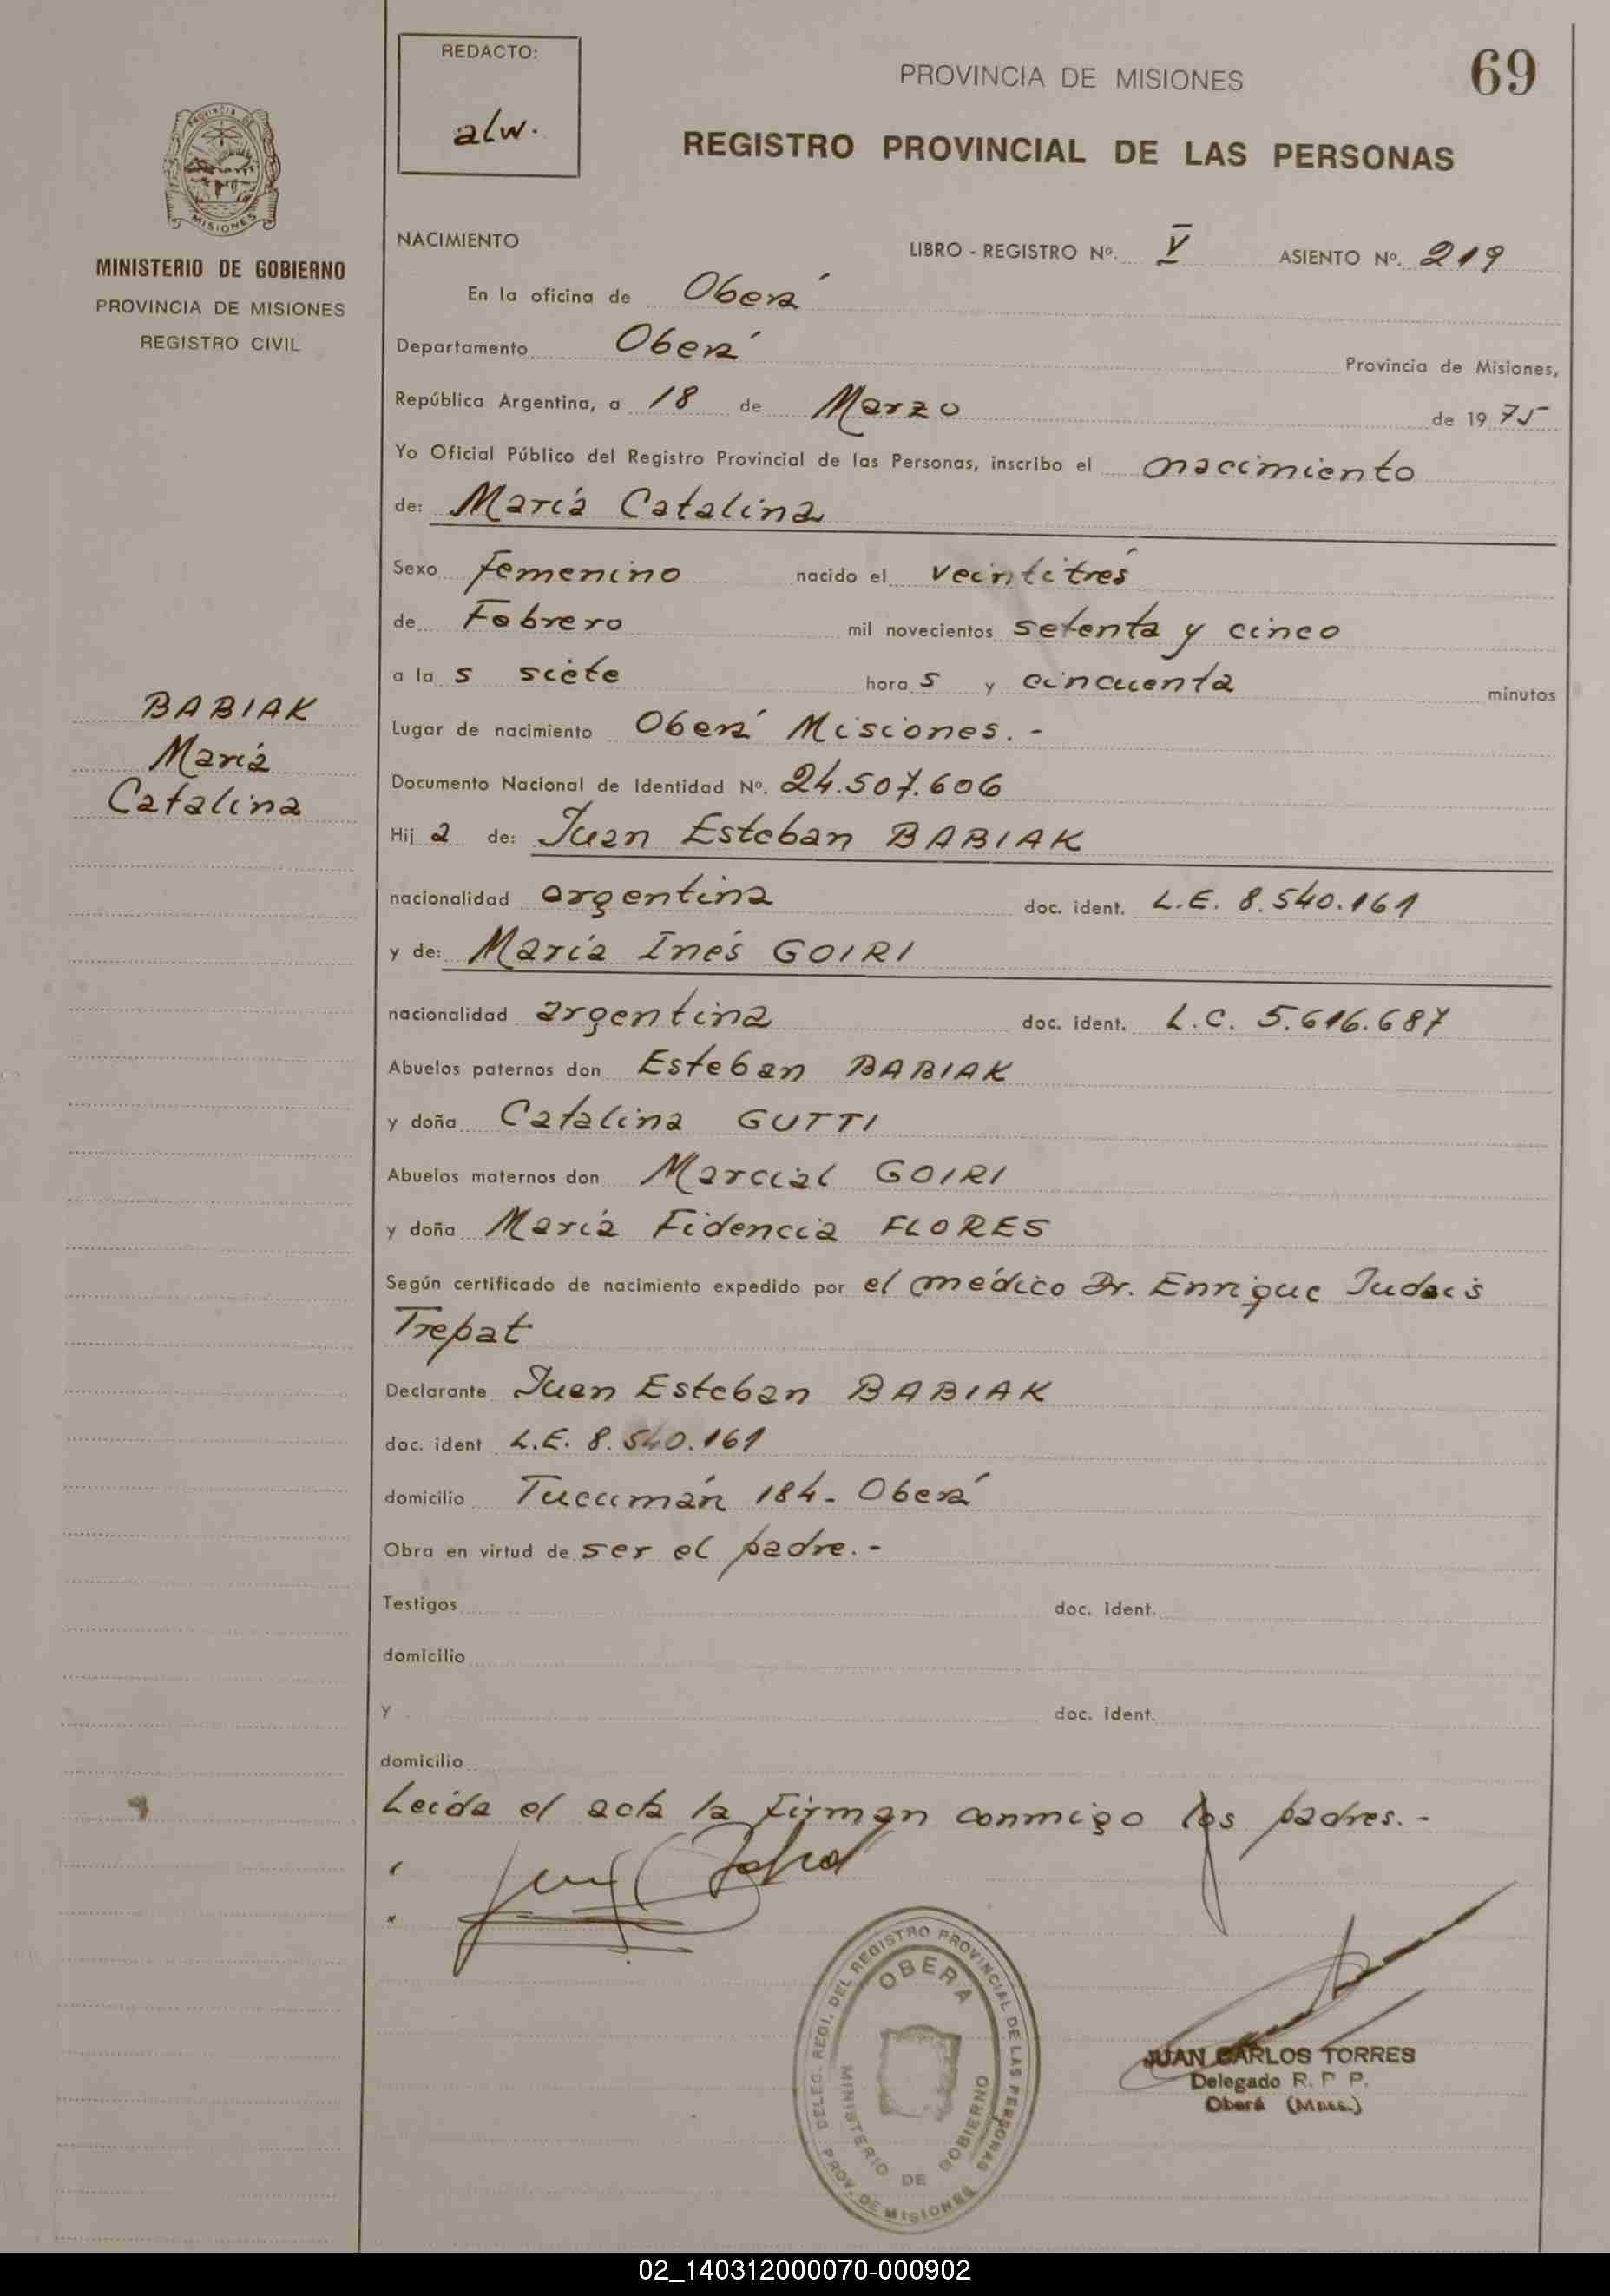 REDACTO:
alw.
PROVINCIA DE MISIONES
69
REGISTRO PROVINCIAL DE LAS PERSONAS
PROVINCIA DE
MISIONES
MINISTERIO DE GOBIERNO
PROVINCIA DE MISIONES
REGISTRO CIVIL
BABIAK
María
Catalina
NACIMIENTO LIBRO - REGISTRO Nº. V ASIENTO Nº. 219
En la oficina de Oberá
Departamento Oberá Provincia de Misiones,
República Argentina, a 18 de Marzo de 1975
Yo Oficial Público del Registro Provincial de las Personas, inscribo el nacimiento
de: María Catalina
Sexo femenino nacido el veintitrés
de Febrero mil novecientos setenta y cinco
a la s siete hora s y cincuenta minutos
Lugar de nacimiento Oberá Misiones. -
Documento Nacional de Identidad Nº. 24.507.606
Hij a de: Juan Esteban BABIAK
nacionalidad argentina doc. ident. L.E. 8.540.161
y de: María Inés GOIRI
nacionalidad argentina doc. ident. L.C. 5.616.687
Abuelos paternos don Esteban BABIAK
y doña Catalina GUTTI
Abuelos maternos don Marcial GOIRI
y doña María Fidencia FLORES
Según certificado de nacimiento expedido por el médico Dr. Enrique
Trepat
Declarante Juan Esteban BABIAK
doc. ident L.E. 8.540.161
domicilio Tucumán 184- Oberá
Obra en virtud de ser el padre. -
Testigos doc. ident.
domicilio
y doc. ident.
domicilio
Leída el acta la firman conmigo los padres. -
DELEG. REGI. DEL REGISTRO PROVINCIAL DE LAS PERSONAS
OBERA
MINISTERIO DE GOBIERNO
PROV. DE MISIONES
JUAN CARLOS TORRES
Delegado R. P P.
Oberá (Mnes.)
02_140312000070-000902